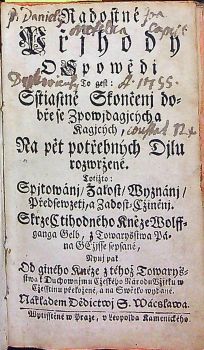 P. Daniel
Radostné
Přjhody
O Spowědi
To gest:
A. 1755.
Sstiastné Skončenj do-
bře se Zpowjdagjcých a
Kagjcých,
Na pět potřebných Djlu
rozwržené.
Totižto:
Spitowánj, Žalost, Wyznánj,
Předsewzetj, a Zadosť-Čjněnj.
Skrze Ctihodného Kněze Wolff-
ganga Gelb, z Towaryšstwa Pá-
na Gežjsse sepsané,
Nynj pak
Od giného Kněze z téhož Towaryš-
stwa k Duchownjmu Českého Národu Užitku w
Češtinu přeložené, a na Swětlo wydané.
Nákladem Dědictwj S. Wácslawa.
Wytisstěné w Praze, v Leopolda Kamenického.